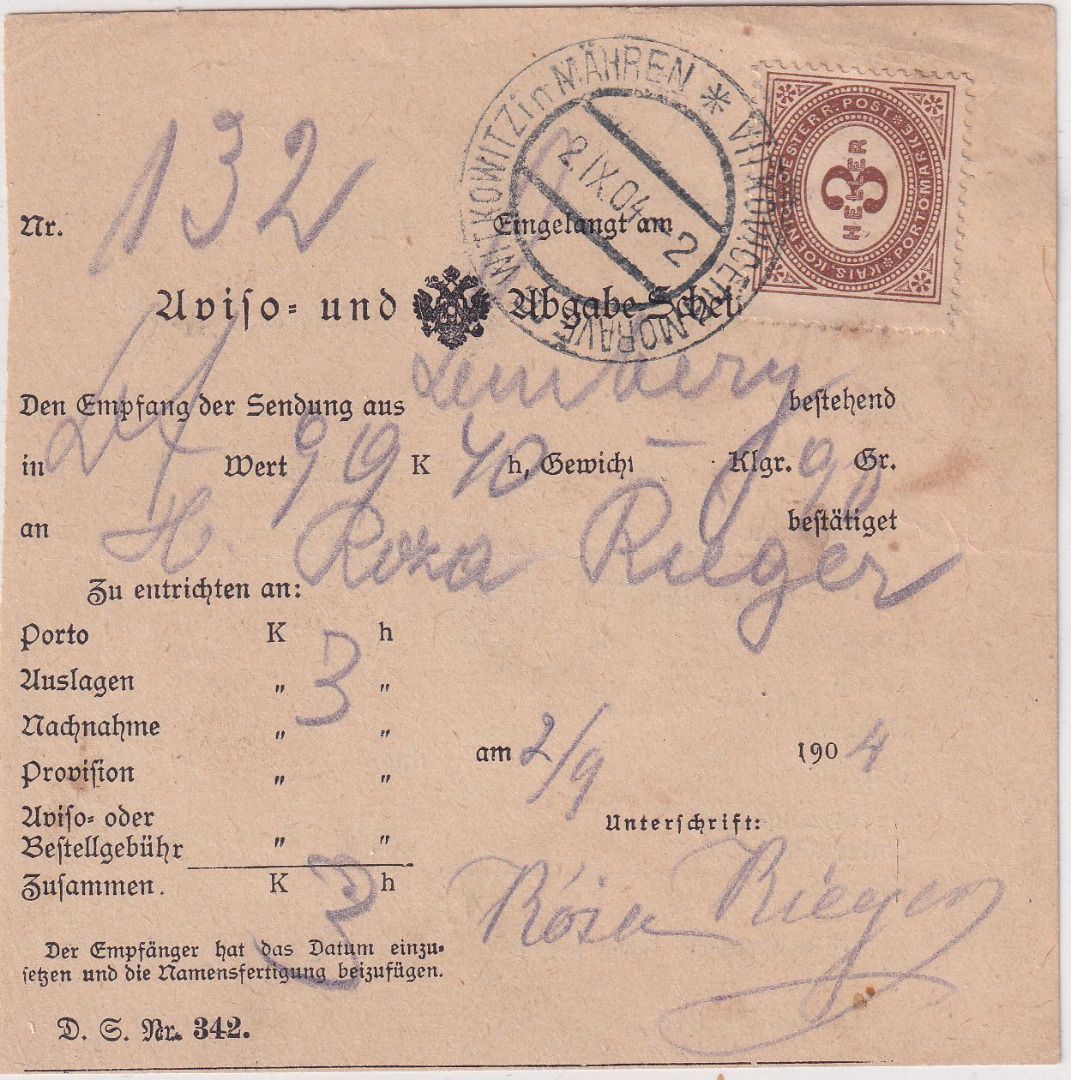 WITKOWITZ in MÄHREN * VITKOVICE NA MORAVĚ *
2.IX.04
2
KAIS. KOENIGL. OESTERR. POST * PORTOMARKE *
3 HELLER
Nr. 132 Eingelangt am
Aviso- und Abgabe-Schei
Den Empfang der Sendung aus Lemberg bestehend
in Wert 99 K 40 h, Gewicht — Klgr. 90 Gr.
an H. Roza Rieger bestätiget
Zu entrichten an:
Porto K 3 h
Auslagen „ „
Nachnahme „ „
Provision „ „
Aviso- oder
Bestellgebühr „ „
Zusammen. K 3 h
am 2/9 1904
Unterschrift:
Róza Rieger
Der Empfänger hat das Datum einzu-
setzen und die Namensfertigung beizufügen.
D. S. Nr. 342.